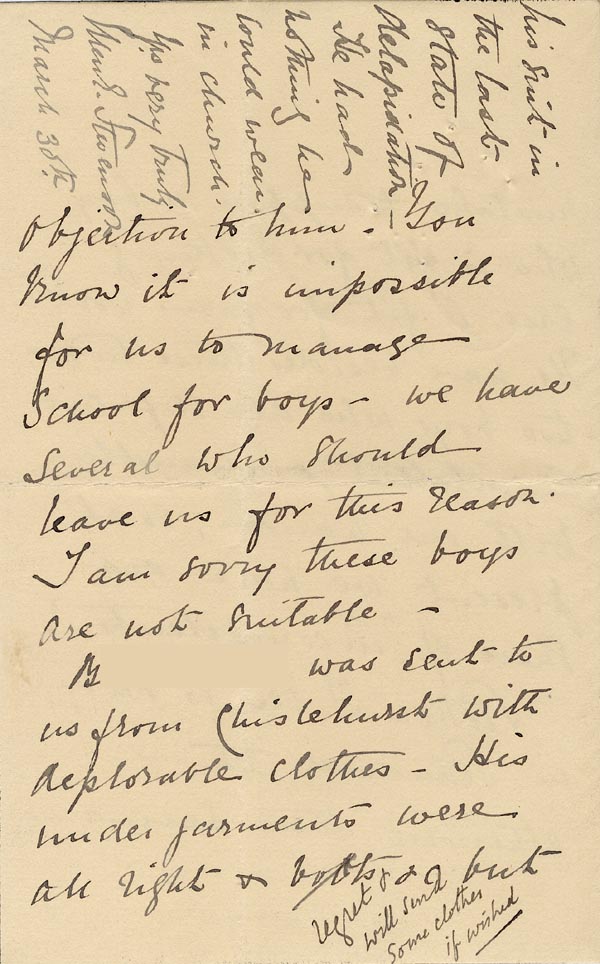 objection to him. You
know it is impossible
for us to manage
School for boys - we have
several who should
leave us for this reason.
I am sorry these boys
are not suitable -
B was sent to
us from Chislehurst with
deplorable clothes - His
under garments were
all right & boots &c but
his suit in
the last
state of
delapidation -
He had
nothing he
could wear
in church.
Yrs very truly
Stevenson
March 30th
regret &
will send
some clothes
if wished